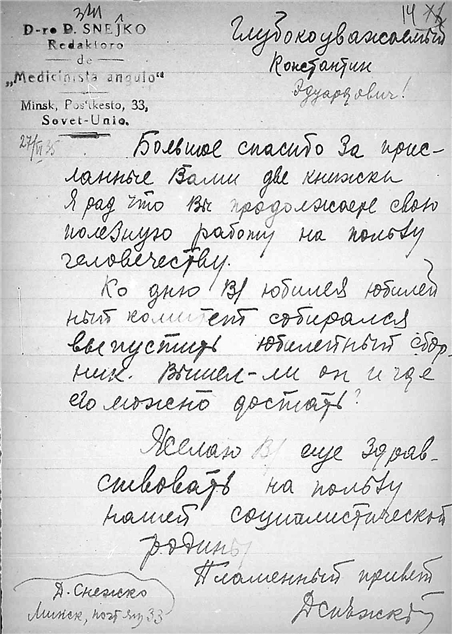 D-ro D. SNEĴKO
Redaktoro
de
„Medicinista angulo"
Minsk, Poŝtkesto, 33,
Sovet-Unio.
Глубокоуважаемый
Константин
Эдуардович!
Большое спасибо за прис-
ланные Вами две книжки
Я рад что Вы продолжаете свою
полезную работу на пользу
человечеству.
Ко дню В/ юбилея юбилей
ный комитет собирался
выпустить юбилейный сбор-
ник. Вышел-ли он и где
его можно достать?
Желаю В/ еще здрав-
ствовать на пользу
нашей социалистической
родины
Пламенный привет
Д Снежко
Д. Снежко
Минск, почт ящ 33